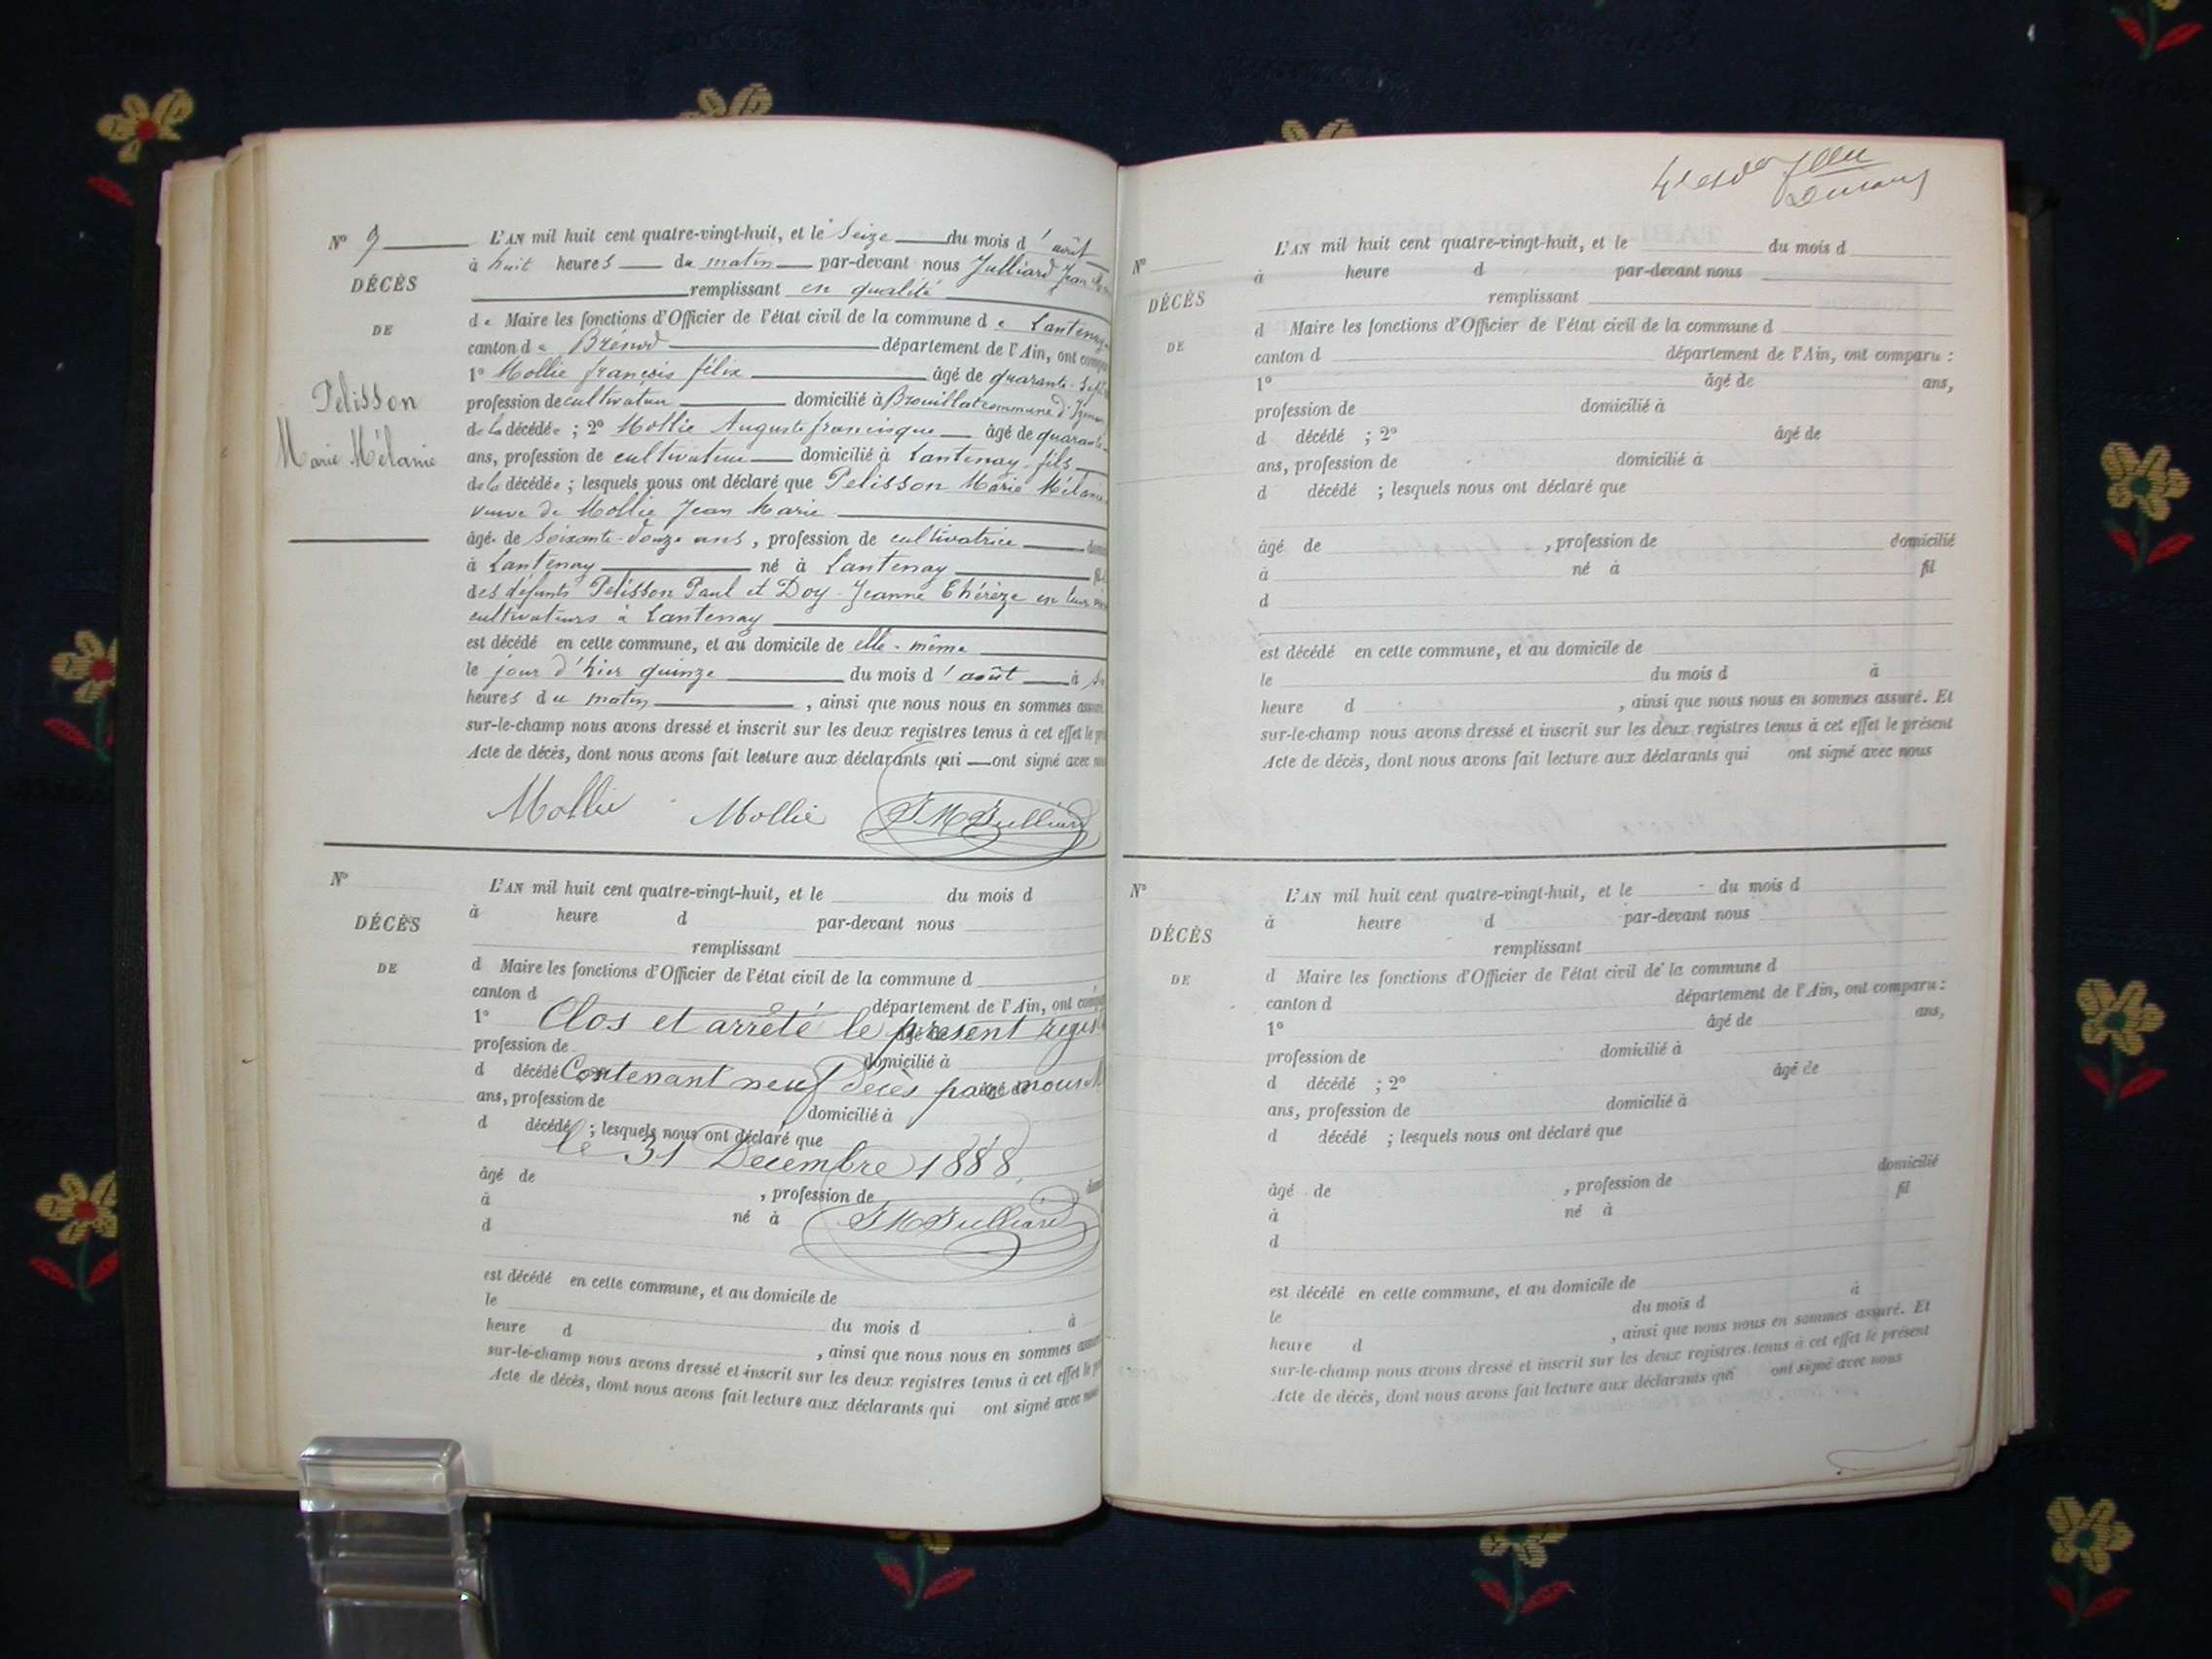 N° 9
DÉCÈS
DE
Pelisson
Marie Mélanie
L'AN mil huit cent quatre-vingt-huit, et le Seize du mois d'août
à huit heures du matin par-devant nous Julliard Jean
remplissant en qualité
de Maire les fonctions d'Officier de l'état civil de la commune de Lantenay
canton de Brénod département de l'Ain, ont comparu
1° Mollie françois félix âgé de quarante-sept
profession de cultivateur domicilié à Brouillat commune d'Izenave
de la décédée ; 2° Mollie Auguste francisque âgé de quarante
ans, profession de cultivateur domicilié à Lantenay, fils
de la décédée ; lesquels nous ont déclaré que Pelisson Marie Mélanie
veuve de Mollie Jean Marie
âgée de Soixante-douze ans, profession de cultivatrice
à Lantenay né à Lantenay
des défunts Pelisson Paul et Doy Jeanne Thérèze en leur
cultivateurs à Lantenay
est décédé en cette commune, et au domicile de elle-même
le jour d'hier quinze du mois d'août à
heures du matin, ainsi que nous nous en sommes
sur-le-champ nous avons dressé et inscrit sur les deux registres tenus à cet effet le
Acte de décès, dont nous avons fait lecture aux déclarants qui ont signé avec
Mollie Mollie JMJulliard
N°
DÉCÈS
DE
L'AN mil huit cent quatre-vingt-huit, et le du mois d
à heure d par-devant nous
remplissant
d Maire les fonctions d'Officier de l'état civil de la commune d
canton d département de l'Ain, ont
Clos et arrêté le présent
1° âgé de
profession de domicilié à
Contenant neuf Décès par nous
d décédé
ans, profession de domicilié à
d décédé ; lesquels nous ont déclaré que
le 31 Decembre 1888
âgé de , profession de
à né à
JMJulliard
d
est décédé en cette commune, et au domicile de
le du mois d à
heure d , ainsi que nous nous en sommes
sur-le-champ nous avons dressé et inscrit sur les deux registres tenus à cet effet le
Acte de décès, dont nous avons fait lecture aux déclarants qui ont signé avec
N°
DÉCÈS
DE
L'AN mil huit cent quatre-vingt-huit, et le du mois d
à heure d par-devant nous
remplissant
d Maire les fonctions d'Officier de l'état civil de la commune d
canton d département de l'Ain, ont comparu :
1° âgé de ans,
profession de domicilié à
d décédé ; 2° âgé de
ans, profession de domicilié à
d décédé ; lesquels nous ont déclaré que
âgé de , profession de domicilié
à né à fil
d
est décédé en cette commune, et au domicile de
le du mois d à
heure d , ainsi que nous nous en sommes assuré. Et
sur-le-champ nous avons dressé et inscrit sur les deux registres tenus à cet effet le présent
Acte de décès, dont nous avons fait lecture aux déclarants qui ont signé avec nous
N°
DÉCÈS
DE
L'AN mil huit cent quatre-vingt-huit, et le du mois d
à heure d par-devant nous
remplissant
d Maire les fonctions d'Officier de l'état civil de la commune d
canton d département de l'Ain, ont comparu :
1° âgé de ans,
profession de domicilié à
d décédé ; 2° âgé de
ans, profession de domicilié à
d décédé ; lesquels nous ont déclaré que
âgé de , profession de domicilié
à né à fil
d
est décédé en cette commune, et au domicile de
le du mois d à
heure d , ainsi que nous nous en sommes assuré. Et
sur-le-champ nous avons dressé et inscrit sur les deux registres tenus à cet effet le présent
Acte de décès, dont nous avons fait lecture aux déclarants qui ont signé avec nous